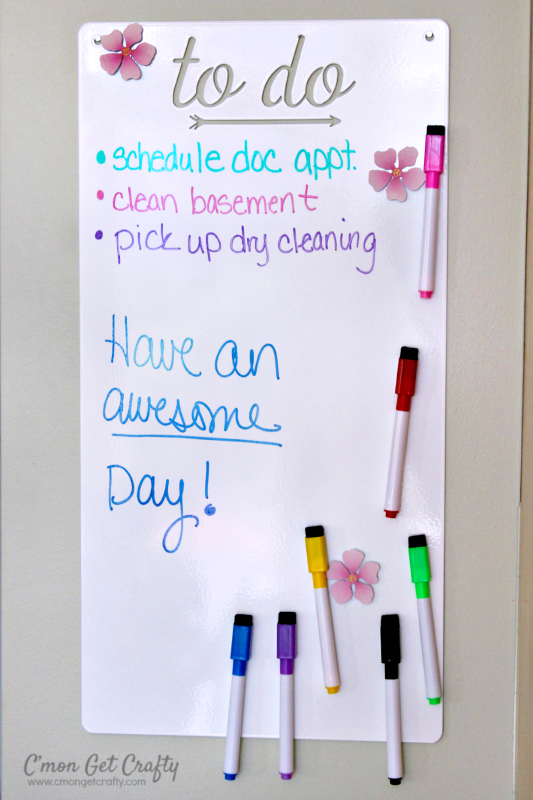 to do
• schedule doc appt.
• clean basement
• pick up dry cleaning
Have an
awesome
Day!
C'mon Get Crafty
www.cmongetcrafty.com